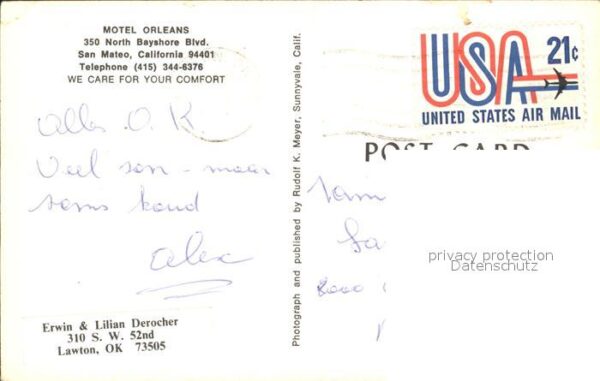 MOTEL ORLEANS
350 North Bayshore Blvd.
San Mateo, California 94401
Telephone (415) 344-6376
WE CARE FOR YOUR COMFORT
Alles O.K.
Veel zon - maar
soms koud
Alex
Erwin & Lilian Derocher
310 S. W. 52nd
Lawton, OK 73505
Photograph and published by Rudolf K. Meyer, Sunnyvale, Calif.
USA 21c
UNITED STATES AIR MAIL
POST CARD
Fam
8000
privacy protection
Datenschutz